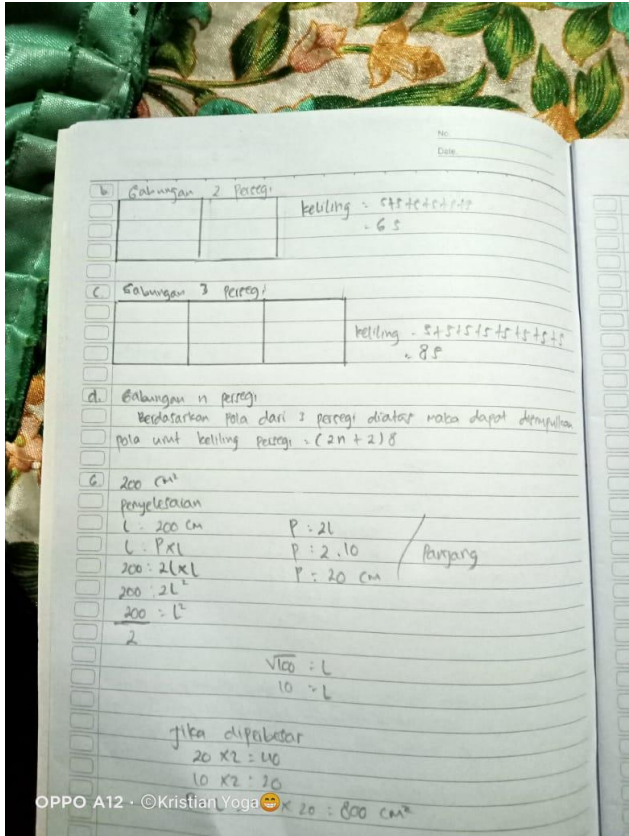 No.
Date.
b Gabungan 2 Persegi
keliling = s+s+s+s+s+s
= 6 s
c. Gabungan 3 persegi
keliling = s+s+s+s+s+s+s+s
= 8s
d. Gabungan n persegi
Berdasarkan Pola dari 3 persegi diatas maka dapat disimpulkan
pola urut keliling persegi = (2n + 2) s
6. 200 cm²
penyelesaian
L = 200 cm
L = P x L
200 = 2L x L
200 = 2L²
200 = L²
2
P = 2L
P = 2.10
P = 20 cm
Panjang
√100 = L
10 = L
Jika diperbesar
20 x 2 = 40
10 x 2 = 20
x 20 = 800 cm²
OPPO A12 · ©Kristian Yoga😁